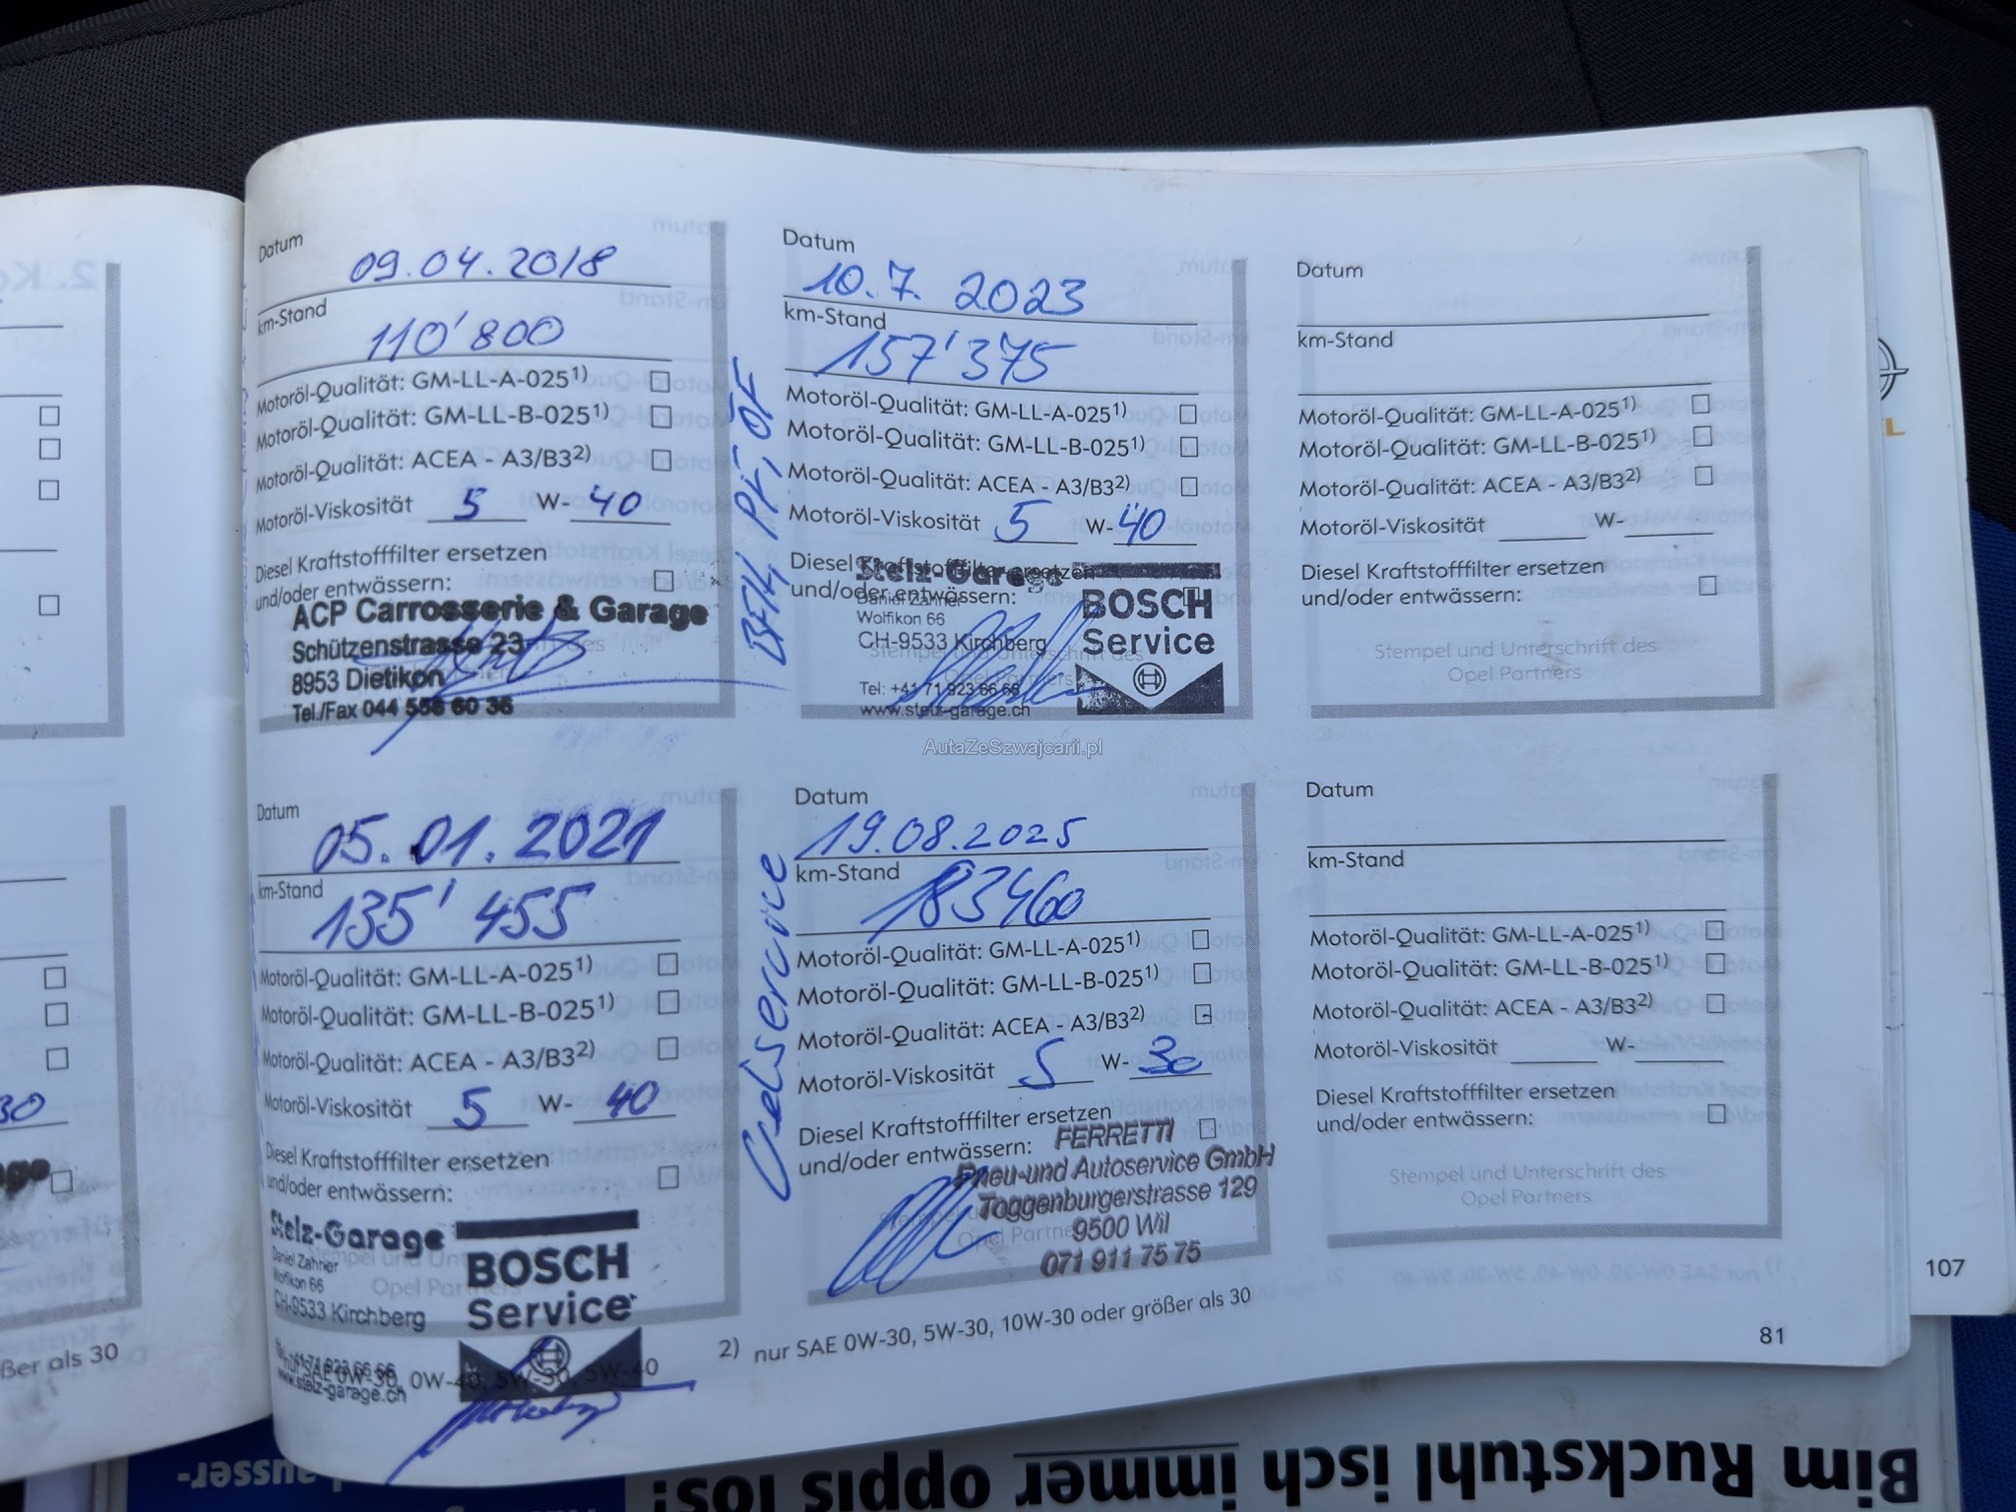 Datum
09.04.2018
km-Stand
110'800
Motoröl-Qualität: GM-LL-A-025¹⁾
Motoröl-Qualität: GM-LL-B-025¹⁾
Motoröl-Qualität: ACEA - A3/B3²⁾
Motoröl-Viskosität 5 W- 40
Diesel Kraftstofffilter ersetzen
und/oder entwässern:
ACP Carrosserie & Garage
Schützenstrasse 23
8953 Dietikon
Tel./Fax 044 558 60 36
Datum
05.01.2021
km-Stand
135'455
Motoröl-Qualität: GM-LL-A-025¹⁾
Motoröl-Qualität: GM-LL-B-025¹⁾
Motoröl-Qualität: ACEA - A3/B3²⁾
Motoröl-Viskosität 5 W- 40
Diesel Kraftstofffilter ersetzen
und/oder entwässern:
Stelz-Garage
Daniel Zahner
Wolfikon 66
CH-9533 Kirchberg
Opel Partners
www.stelz-garage.ch
BOSCH
Service
nur SAE 0W-30, 0W-40, 5W-30, 5W-40
Datum
10.7.2023
km-Stand
157'375
Motoröl-Qualität: GM-LL-A-025¹⁾
Motoröl-Qualität: GM-LL-B-025¹⁾
Motoröl-Qualität: ACEA - A3/B3²⁾
Motoröl-Viskosität 5 W- 40
Diesel Kraftstofffilter ersetzen
und/oder entwässern:
Stelz-Garage
Daniel Zahner
Wolfikon 66
CH-9533 Kirchberg
Tel: +41 71 923 66 66
www.stelz-garage.ch
BOSCH
Service
AutaZeSzwajcarii.pl
Oelservice
Datum
19.08.2025
km-Stand
183460
Motoröl-Qualität: GM-LL-A-025¹⁾
Motoröl-Qualität: GM-LL-B-025¹⁾
Motoröl-Qualität: ACEA - A3/B3²⁾
Motoröl-Viskosität 5 W- 30
Diesel Kraftstofffilter ersetzen
und/oder entwässern:
FERRETTI
Pneu-und Autoservice GmbH
Toggenburgerstrasse 129
9500 Wil
071 911 75 75
2) nur SAE 0W-30, 5W-30, 10W-30 oder größer als 30
Datum
km-Stand
Motoröl-Qualität: GM-LL-A-025¹⁾
Motoröl-Qualität: GM-LL-B-025¹⁾
Motoröl-Qualität: ACEA - A3/B3²⁾
Motoröl-Viskosität W-
Diesel Kraftstofffilter ersetzen
und/oder entwässern:
Stempel und Unterschrift des
Opel Partners
Datum
km-Stand
Motoröl-Qualität: GM-LL-A-025¹⁾
Motoröl-Qualität: GM-LL-B-025¹⁾
Motoröl-Qualität: ACEA - A3/B3²⁾
Motoröl-Viskosität W-
Diesel Kraftstofffilter ersetzen
und/oder entwässern:
Stempel und Unterschrift des
Opel Partners
81
107
30
als 30
Bim Ruckstuhl isch immer oppis los!